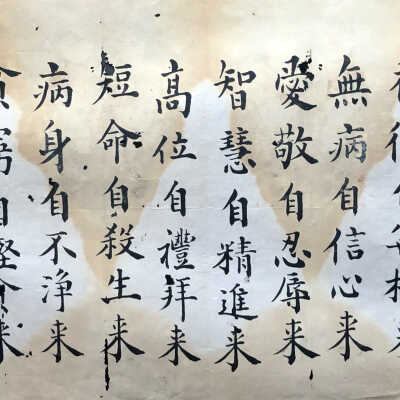 無病自信心来
愛敬自忍辱来
智慧自精進来
高位自禮拜来
短命自殺生来
病身自不浄来
貧窮自慳貪来